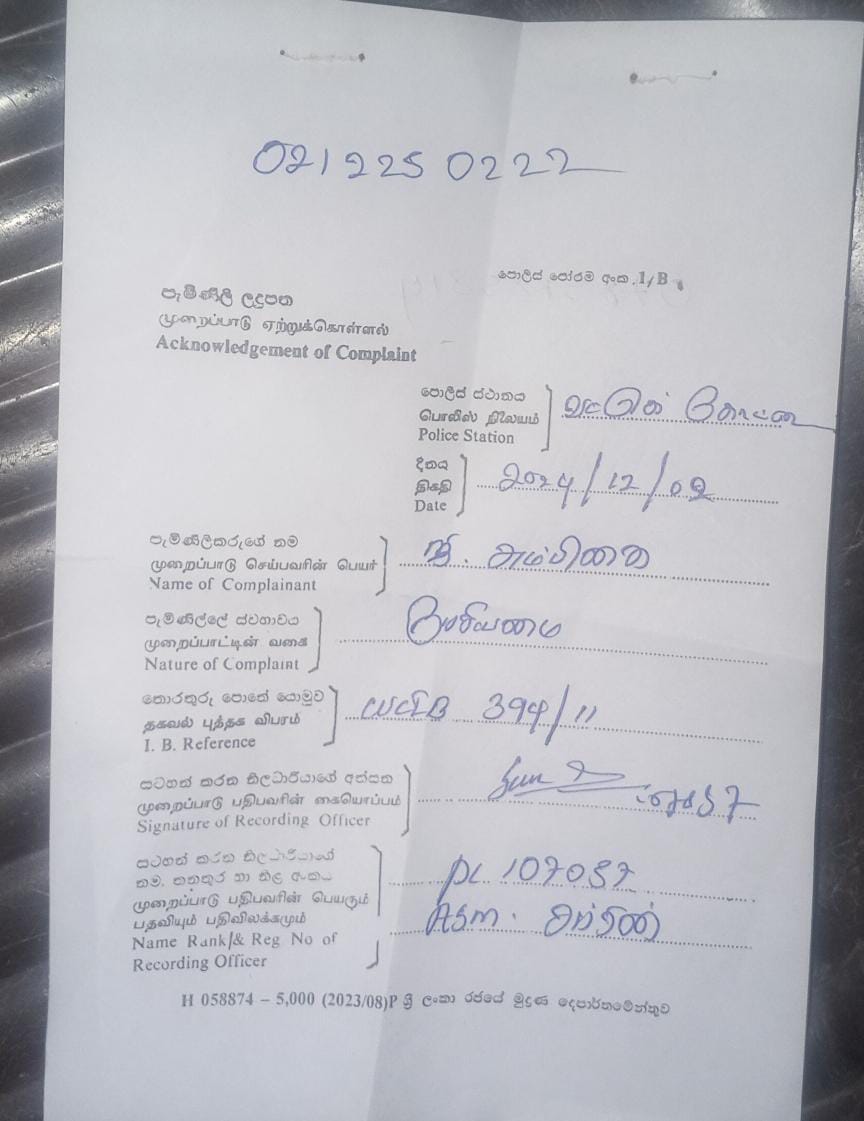 021 225 0222
පොලිස් පෝරම අංක 1/B
පැමිණිලි ලදුපත
முறைப்பாடு ஏற்றுக்கொள்ளல்
Acknowledgement of Complaint
පොලිස් ස්ථානය
பொலிஸ் நிலையம்
Police Station
வட்டுக் கோட்டை
දිනය
திகதி
Date
2024/12/02
පැමිණිලිකරුගේ නම
முறைப்பாடு செய்பவரின் பெயர்
Name of Complainant
அம்பிகை
පැමිණිල්ලේ ස්වභාවය
முறைப்பாட்டின் வகை
Nature of Complaint
තොරතුරු පොතේ යොමුව
தகவல் புத்தக விபரம்
I. B. Reference
394/11
සටහන් කරන නිලධාරියාගේ අත්සන
முறைப்பாடு பதிபவரின் கையொப்பம்
Signature of Recording Officer
සටහන් කරන නිලධාරියාගේ
නම, තනතුර හා නිළ අංකය
முறைப்பாடு பதிபவரின் பெயரும்
பதவியும் பதிவிலக்கமும்
Name Rank & Reg No of
Recording Officer
PC 107057
ASM.
H 058874 – 5,000 (2023/08)P ශ්‍රී ලංකා රජයේ මුද්‍රණ දෙපාර්තමේන්තුව